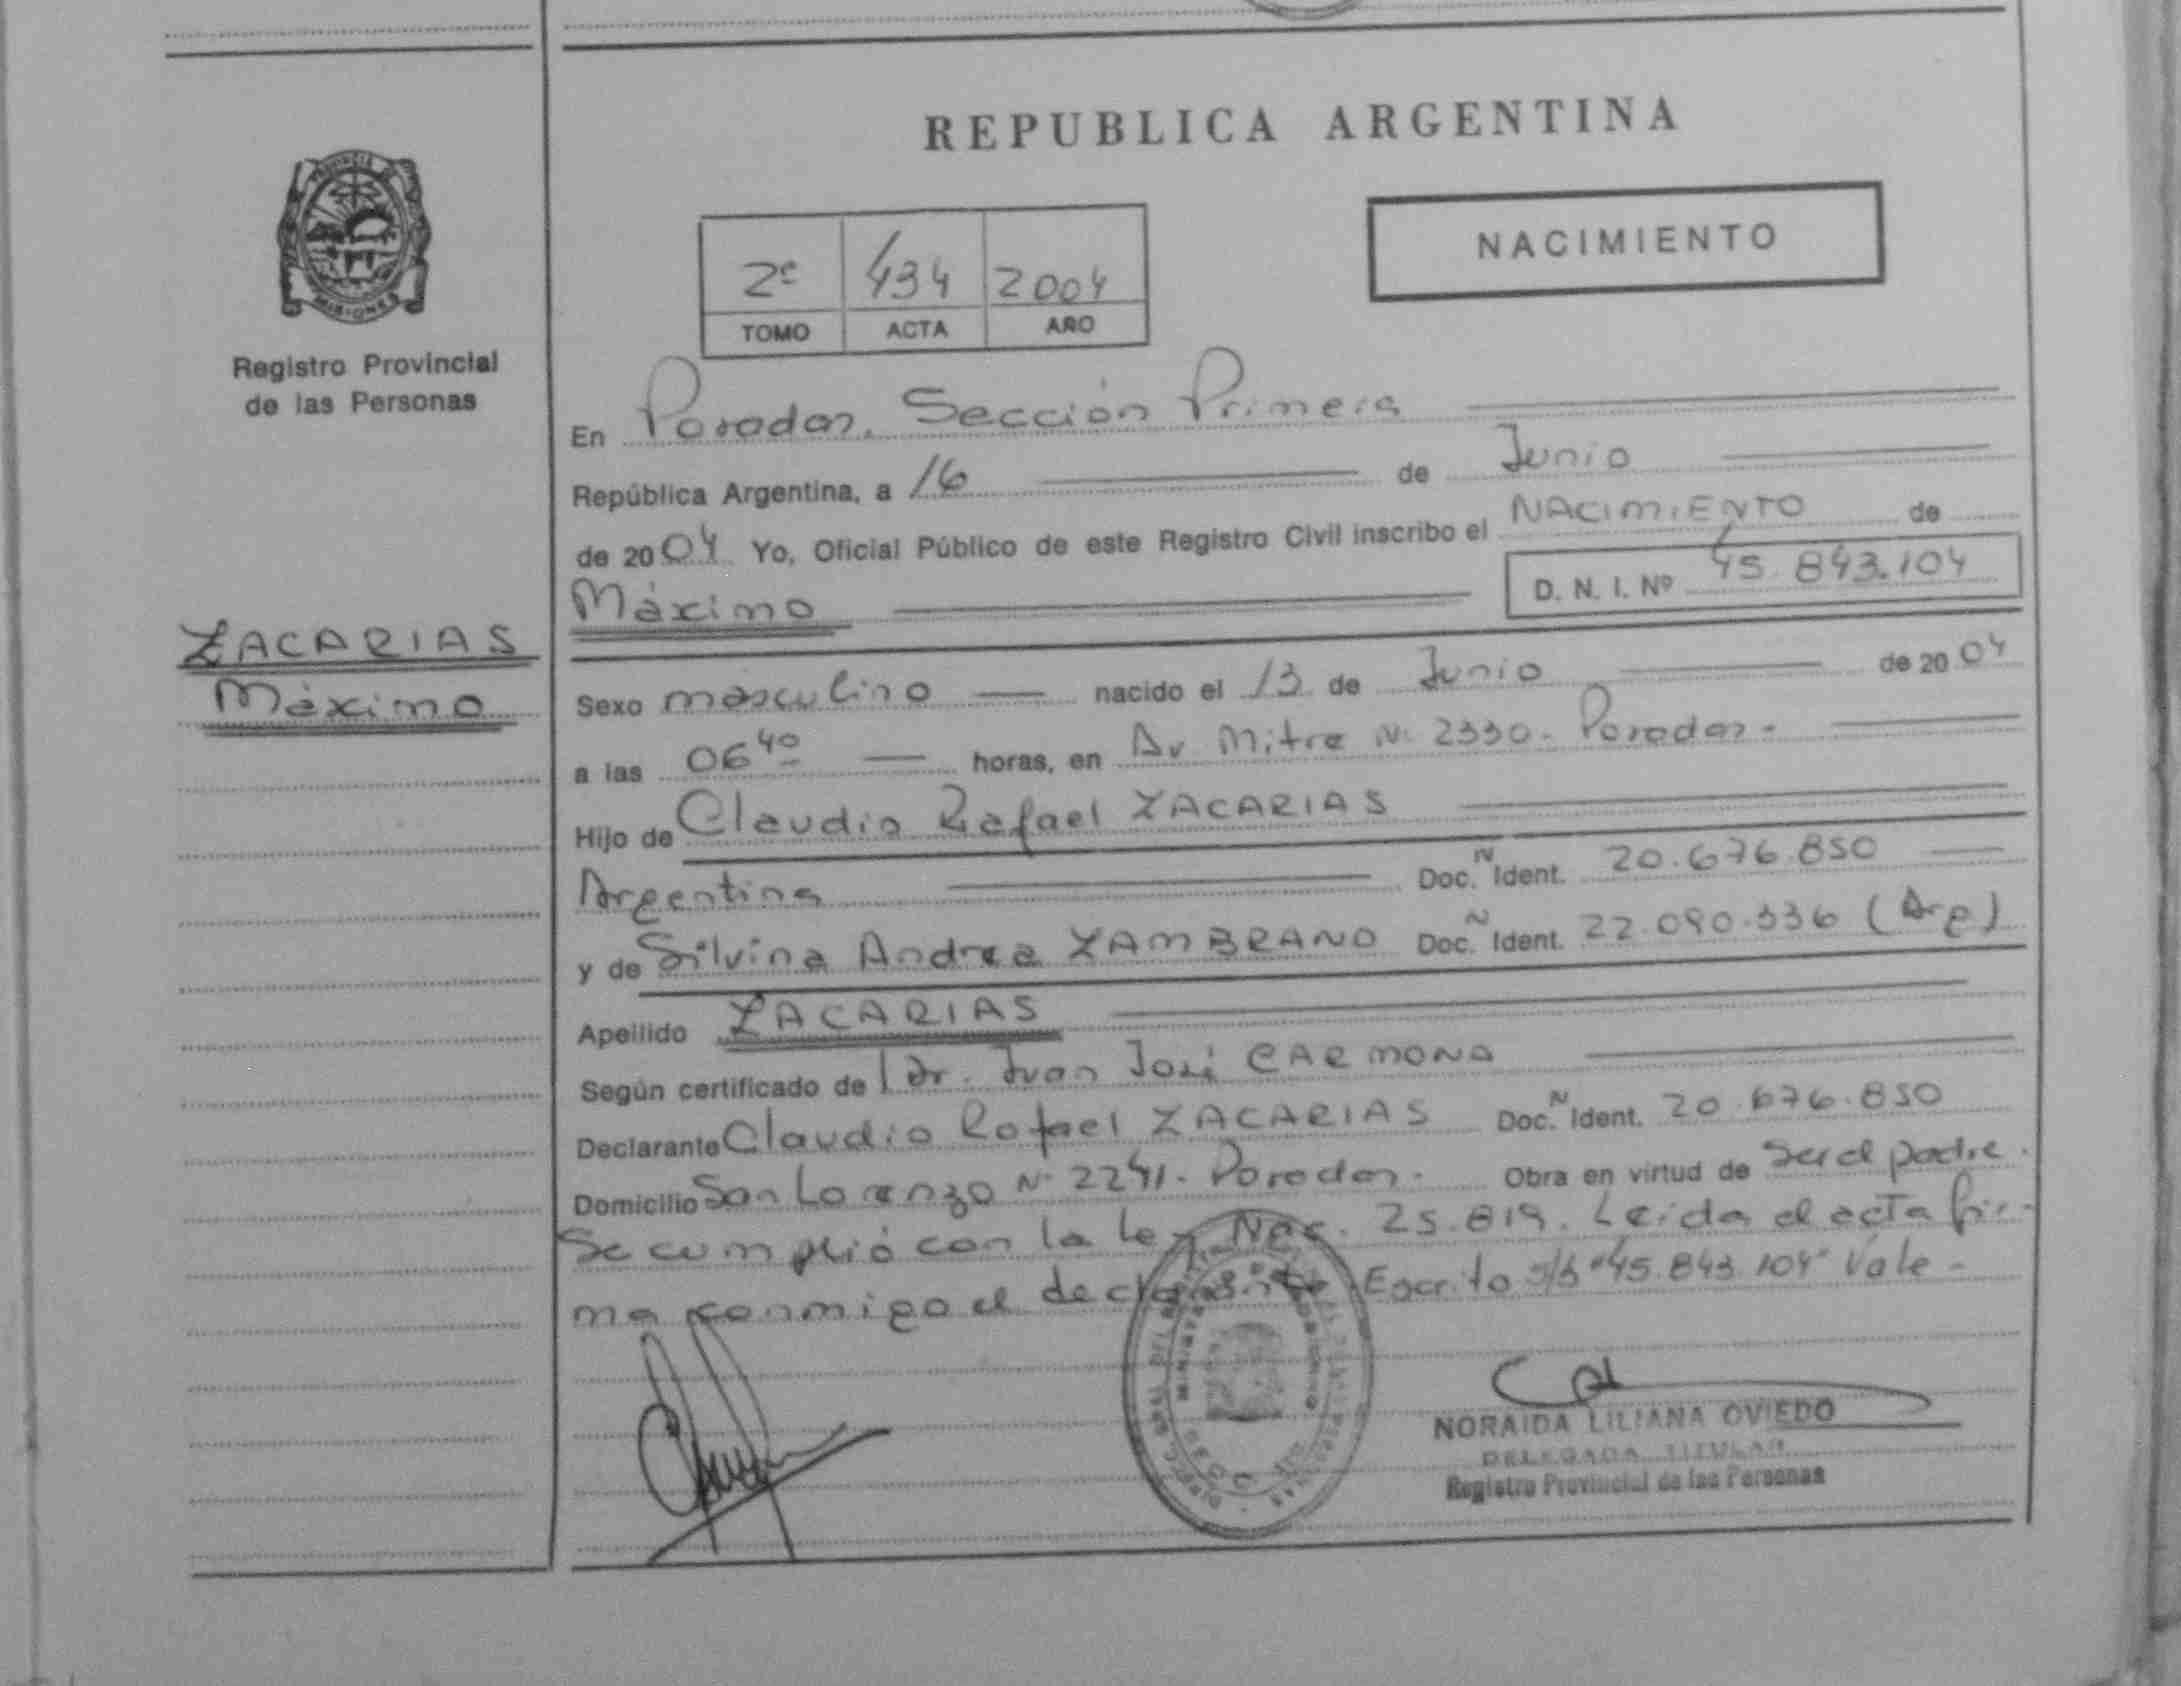 REPUBLICA ARGENTINA
NACIMIENTO
2º 434 2004
TOMO ACTA AÑO
PROVINCIA DE
MISIONES
Registro Provincial
de las Personas
ZACARIAS
Máximo
En Posadas, Sección Primera
República Argentina, a 16 de Junio
de 2004 Yo, Oficial Público de este Registro Civil inscribo el NACIMIENTO de
Máximo D. N. I. Nº 45.843.104
Sexo masculino nacido el 13 de Junio de 2004
a las 06 40 horas, en Av Mitre Nº 2330. Posadas.
Hijo de Claudio Rafael ZACARIAS
Argentina Doc. N Ident. 20.676.850
y de Silvina Andrea ZAMBRANO Doc. N Ident. 22.090.336 (Arg)
Apellido ZACARIAS
Según certificado de l Dr. Juan José CARMONA
Declarante Claudio Rafael ZACARIAS Doc. N Ident. 20.676.850
Domicilio San Lorenzo Nº 2241. Posadas. Obra en virtud de Ser el padre.
Se cumplió con la ley Nac. 25.819. Leída el acta fir-
ma conmigo el declarante Escrito s/b "45.843.104" Vale-
NORAIDA LILIANA OVIEDO
DELEGADA TITULAR
Registro Provincial de las Personas